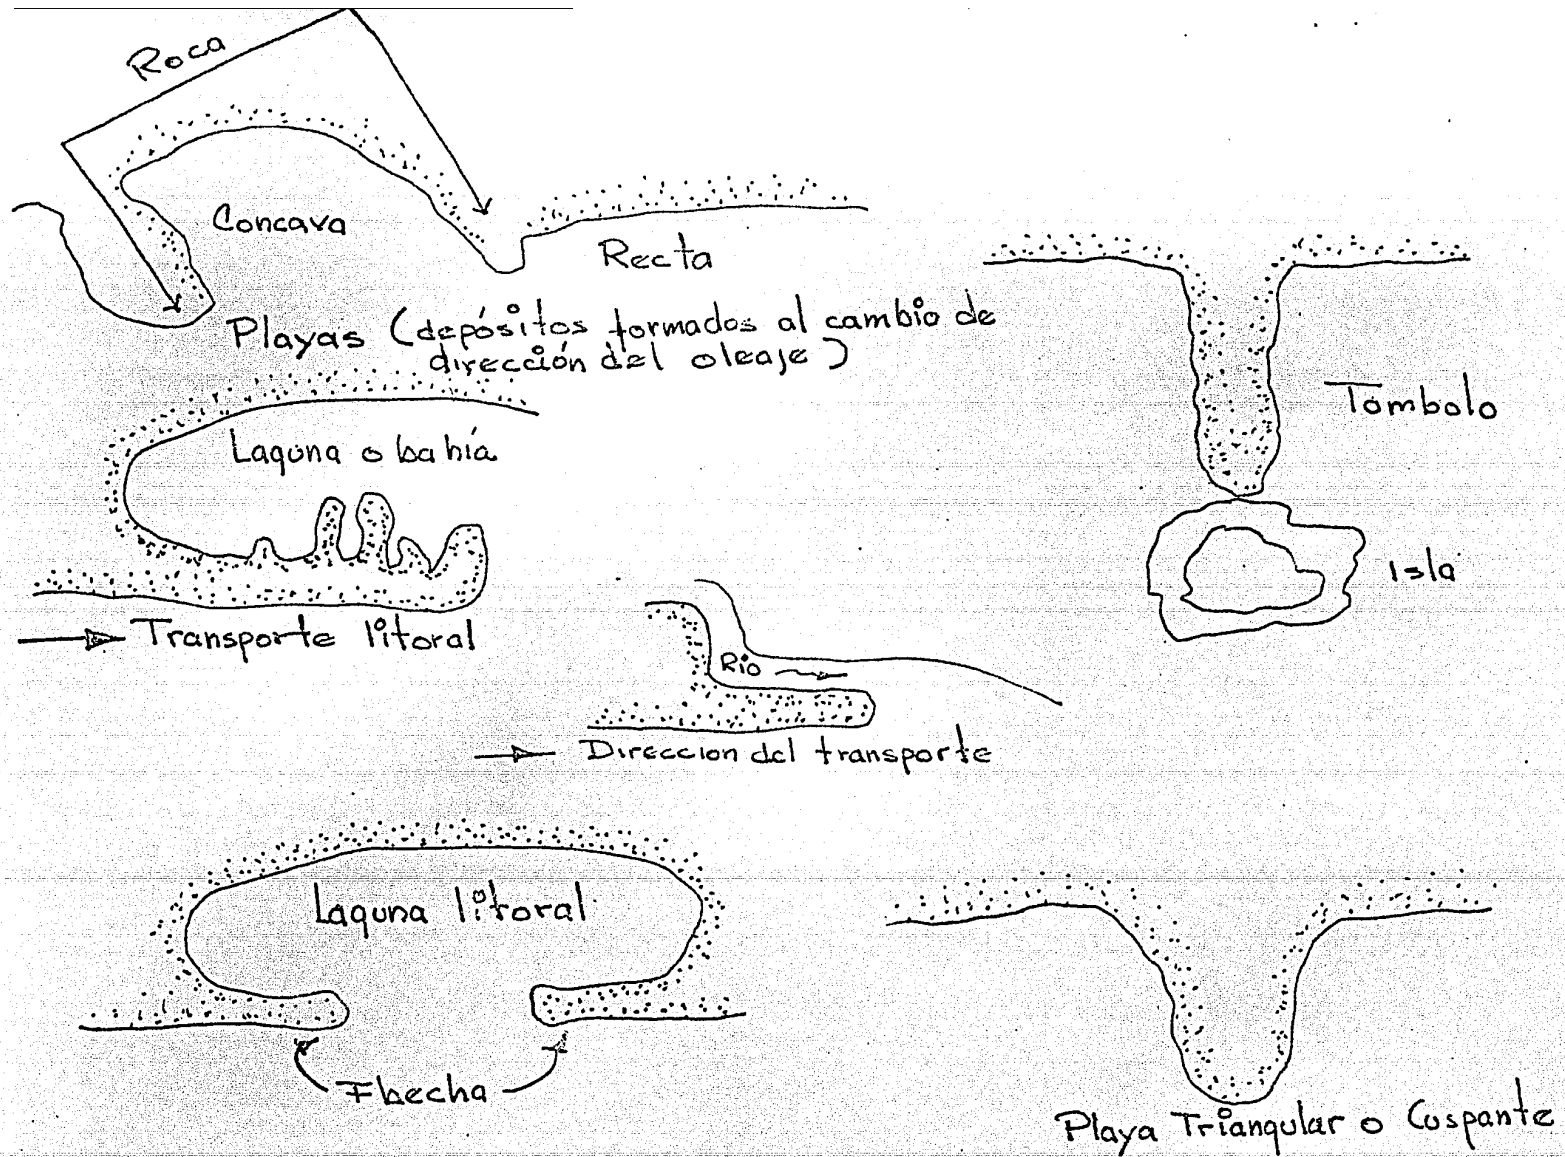 Roca
Concava
Recta
Playas (depósitos formados al cambio de
dirección del oleaje)
Laguna o bahía
Tombolo
Isla
Transporte litoral
Río
Direccion del transporte
Laguna litoral
Flecha
Playa Triangular o Cuspante